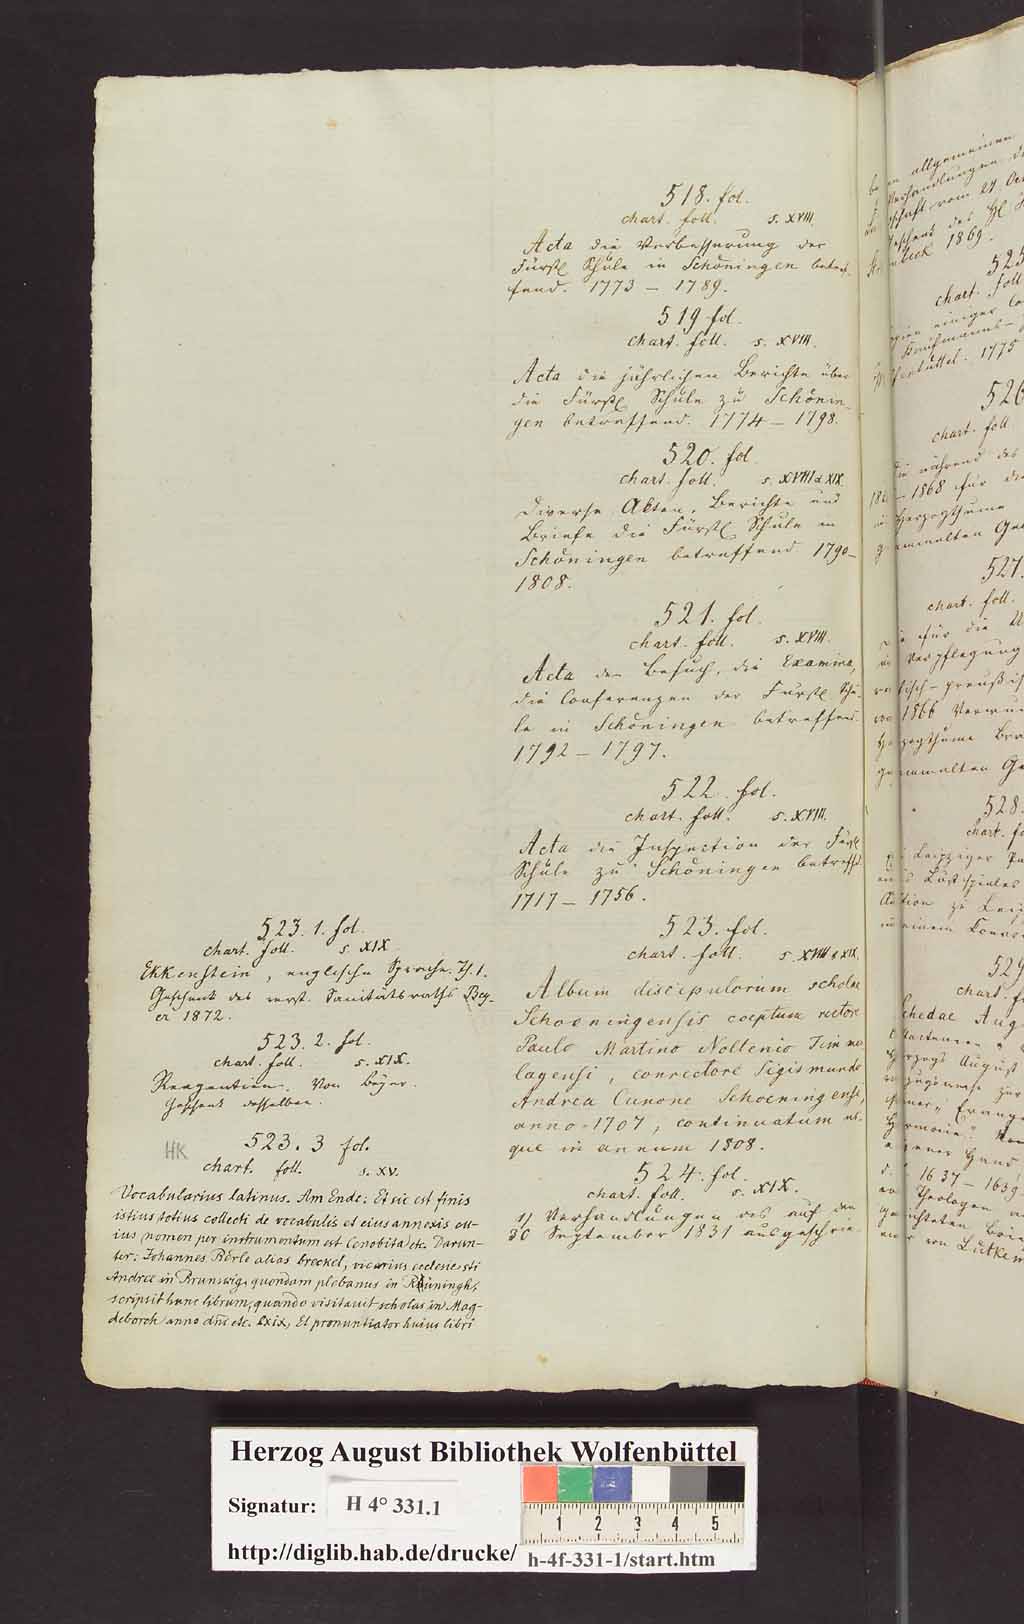 518. fol.
chart. foll. s. XVIII.
Acta die Verbesserung der
Fürstl Schule in Schöningen betref-
fend. 1773 – 1789.
519 fol.
chart. foll. s. XVIII.
Acta die jährlichen Berichte über
die Fürstl Schule zu Schönin-
gen betreffend. 1774 – 1798.
520. fol.
chart. foll. s. XVIII & XIX.
Diverse Akten, Berichte und
Briefe die Fürstl Schule in
Schöningen betreffend 1790–
1808.
521. fol.
chart. foll. s. XVIII.
Acta den Besuch, die Examina,
die Conferenzen der Fürstl Schu-
le in Schöningen betreffend
1792 – 1797.
522. fol.
chart. foll. s. XVIII.
Acta die Inspection der Fürstl
Schule zu Schöningen betreffd
1717 – 1756.
523. fol.
chart. foll. s. XVIII & XIX.
Album discipulorum scholae
Schoeningensis coeptum rectore
Paulo Martino Noltenio
lagensi, conrectore Sigismundo
Andrea Cunone Schoeningensi,
anno 1707, continuatum us-
que in annum 1808.
524. fol.
chart. foll. s. XIX.
Verhandlungen des auf den
30 September 1831 ausgeschrie-
523. 1. fol.
chart. foll. s. XIX.
Ekkenstein, englische Sprache. Th. 1.
Geschenk des verst. Sanitätsraths Bey-
er 1872.
523. 2. fol.
chart. foll. s. XIX.
Reagentien. Von Beyer.
Geschenk desselben.
HK
523. 3 fol.
chart. foll. s. XV.
Vocabularius latinus. Am Ende: Et sic est finis
istius totius collecti de vocabulis et eius annexis cu-
ius nomen per instrumentum est Cenobita etc. Darun-
ter: Johannes Berle alias breckel, vicarius ecclesie sti
Andree in Brunswig, quondam plebanus in
scripsit hunc librum, quando visitavit scholas in Mag-
deborch anno dni etc. lxix, Et pronuntiator huius libri
en allgemeinen
Verhandlungen
schaft vom 27 Oc
Geschenk des Hl.
1869.
525
chart. foll
einiger
Kaufmanns-
fenbüttel. 1775
526
chart. foll
während des
1868 für die
Herzogthume
gesammelten Ge
527.
chart. foll.
für die
Verpflegung
isch-preußis
1866 Verwun
Herzogthume Br
gesammelten Ge
528.
chart. fo
Leipziger
Lustspieles
Aktion zu Leip
in einem
529
chart. fo
chedae Aug
Herzogs August
zugsweise zur
Evange
Harmonie.
eigener Hand
1637 – 1639
Theologen
gerichteten
von Lütkem
Herzog August Bibliothek Wolfenbüttel
Signatur: H 4° 331.1
1 2 3 4 5
http://diglib.hab.de/drucke/ h-4f-331-1/start.htm